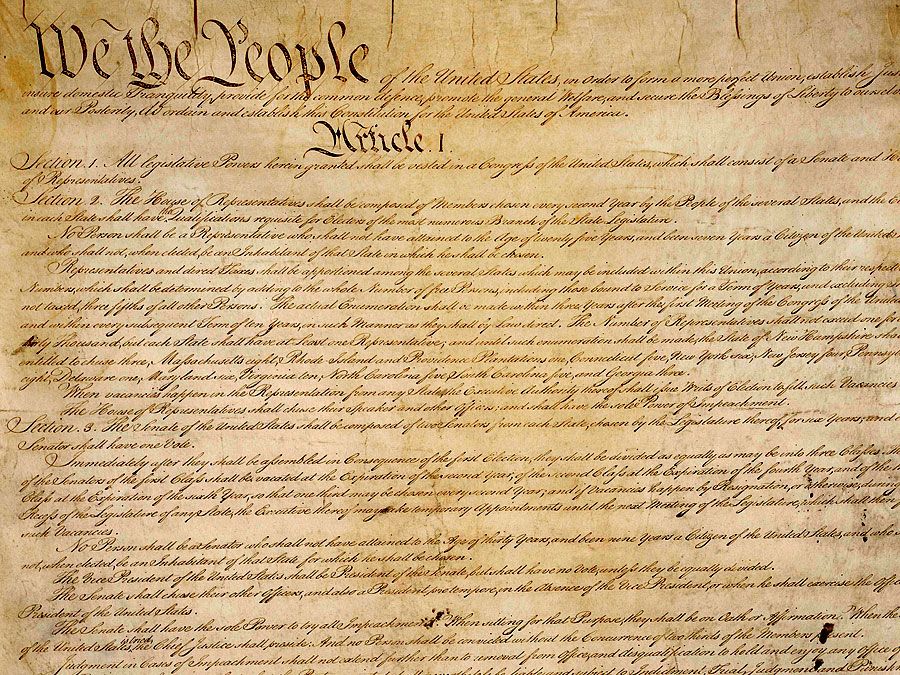 We the People of the United States, in Order to form a more perfect Union, establish Jus
insure domestic Tranquility, provide for the common defence, promote the general Welfare, and secure the Blessings of Liberty to oursel
and our Posterity, do ordain and establish this Constitution for the United States of America.
Article. I.
Section. 1. All legislative Powers herein granted shall be vested in a Congress of the United States, which shall consist of a Senate and Ho
of Representatives.
Section. 2. The House of Representatives shall be composed of Members chosen every second Year by the People of the several States, and the E
in each State shall have the Qualifications requisite for Electors of the most numerous Branch of the State Legislature.
No Person shall be a Representative who shall not have attained to the Age of twenty five Years, and been seven Years a Citizen of the United
and who shall not, when elected, be an Inhabitant of that State in which he shall be chosen.
Representatives and direct Taxes shall be apportioned among the several States which may be included within this Union, according to their respect
Numbers, which shall be determined by adding to the whole Number of free Persons, including those bound to Service for a Term of Years, and excluding
not taxed, three fifths of all other Persons. The actual Enumeration shall be made within three Years after the first Meeting of the Congress of the United
and within every subsequent Term of ten Years, in such Manner as they shall by Law direct. The Number of Representatives shall not exceed one for
thirty Thousand, but each State shall have at Least one Representative; and until such enumeration shall be made, the State of New Hampshire shal
entitled to chuse three, Massachusetts eight, Rhode Island and Providence Plantations one, Connecticut five, New York six, New Jersey four, Pennsyl
eight, Delaware one, Maryland six, Virginia ten, North Carolina five, South Carolina five, and Georgia three.
When vacancies happen in the Representation from any State, the Executive Authority thereof shall issue Writs of Election to fill such Vacancies
The House of Representatives shall chuse their Speaker and other Officers; and shall have the sole Power of Impeachment.
Section. 3. The Senate of the United States shall be composed of two Senators from each State, chosen by the Legislature thereof, for six Years; and
Senator shall have one Vote.
Immediately after they shall be assembled in Consequence of the first Election, they shall be divided as equally as may be into three Classes. Th
of the Senators of the first Class shall be vacated at the Expiration of the second Year, of the second Class at the Expiration of the fourth Year, and of the
Class at the Expiration of the sixth Year, so that one third may be chosen every second Year; and if Vacancies happen by Resignation, or otherwise, during
Recess of the Legislature of any State, the Executive thereof may make temporary Appointments until the next Meeting of the Legislature, which shall then
such Vacancies.
No Person shall be a Senator who shall not have attained to the Age of thirty Years, and been nine Years a Citizen of the United States, and who
not, when elected, be an Inhabitant of that State for which he shall be chosen.
The Vice President of the United States shall be President of the Senate, but shall have no Vote, unless they be equally divided.
The Senate shall chuse their other Officers, and also a President pro tempore, in the Absence of the Vice President, or when he shall exercise the Office
President of the United States.
The Senate shall have the sole Power to try all Impeachments. When sitting for that Purpose, they shall be on Oath or Affirmation. When the
of the United States is tried, the Chief Justice shall preside: And no Person shall be convicted without the Concurrence of two thirds of the Members present.
Judgment in Cases of Impeachment shall not extend further than to removal from Office, and disqualification to hold and enjoy any Office of